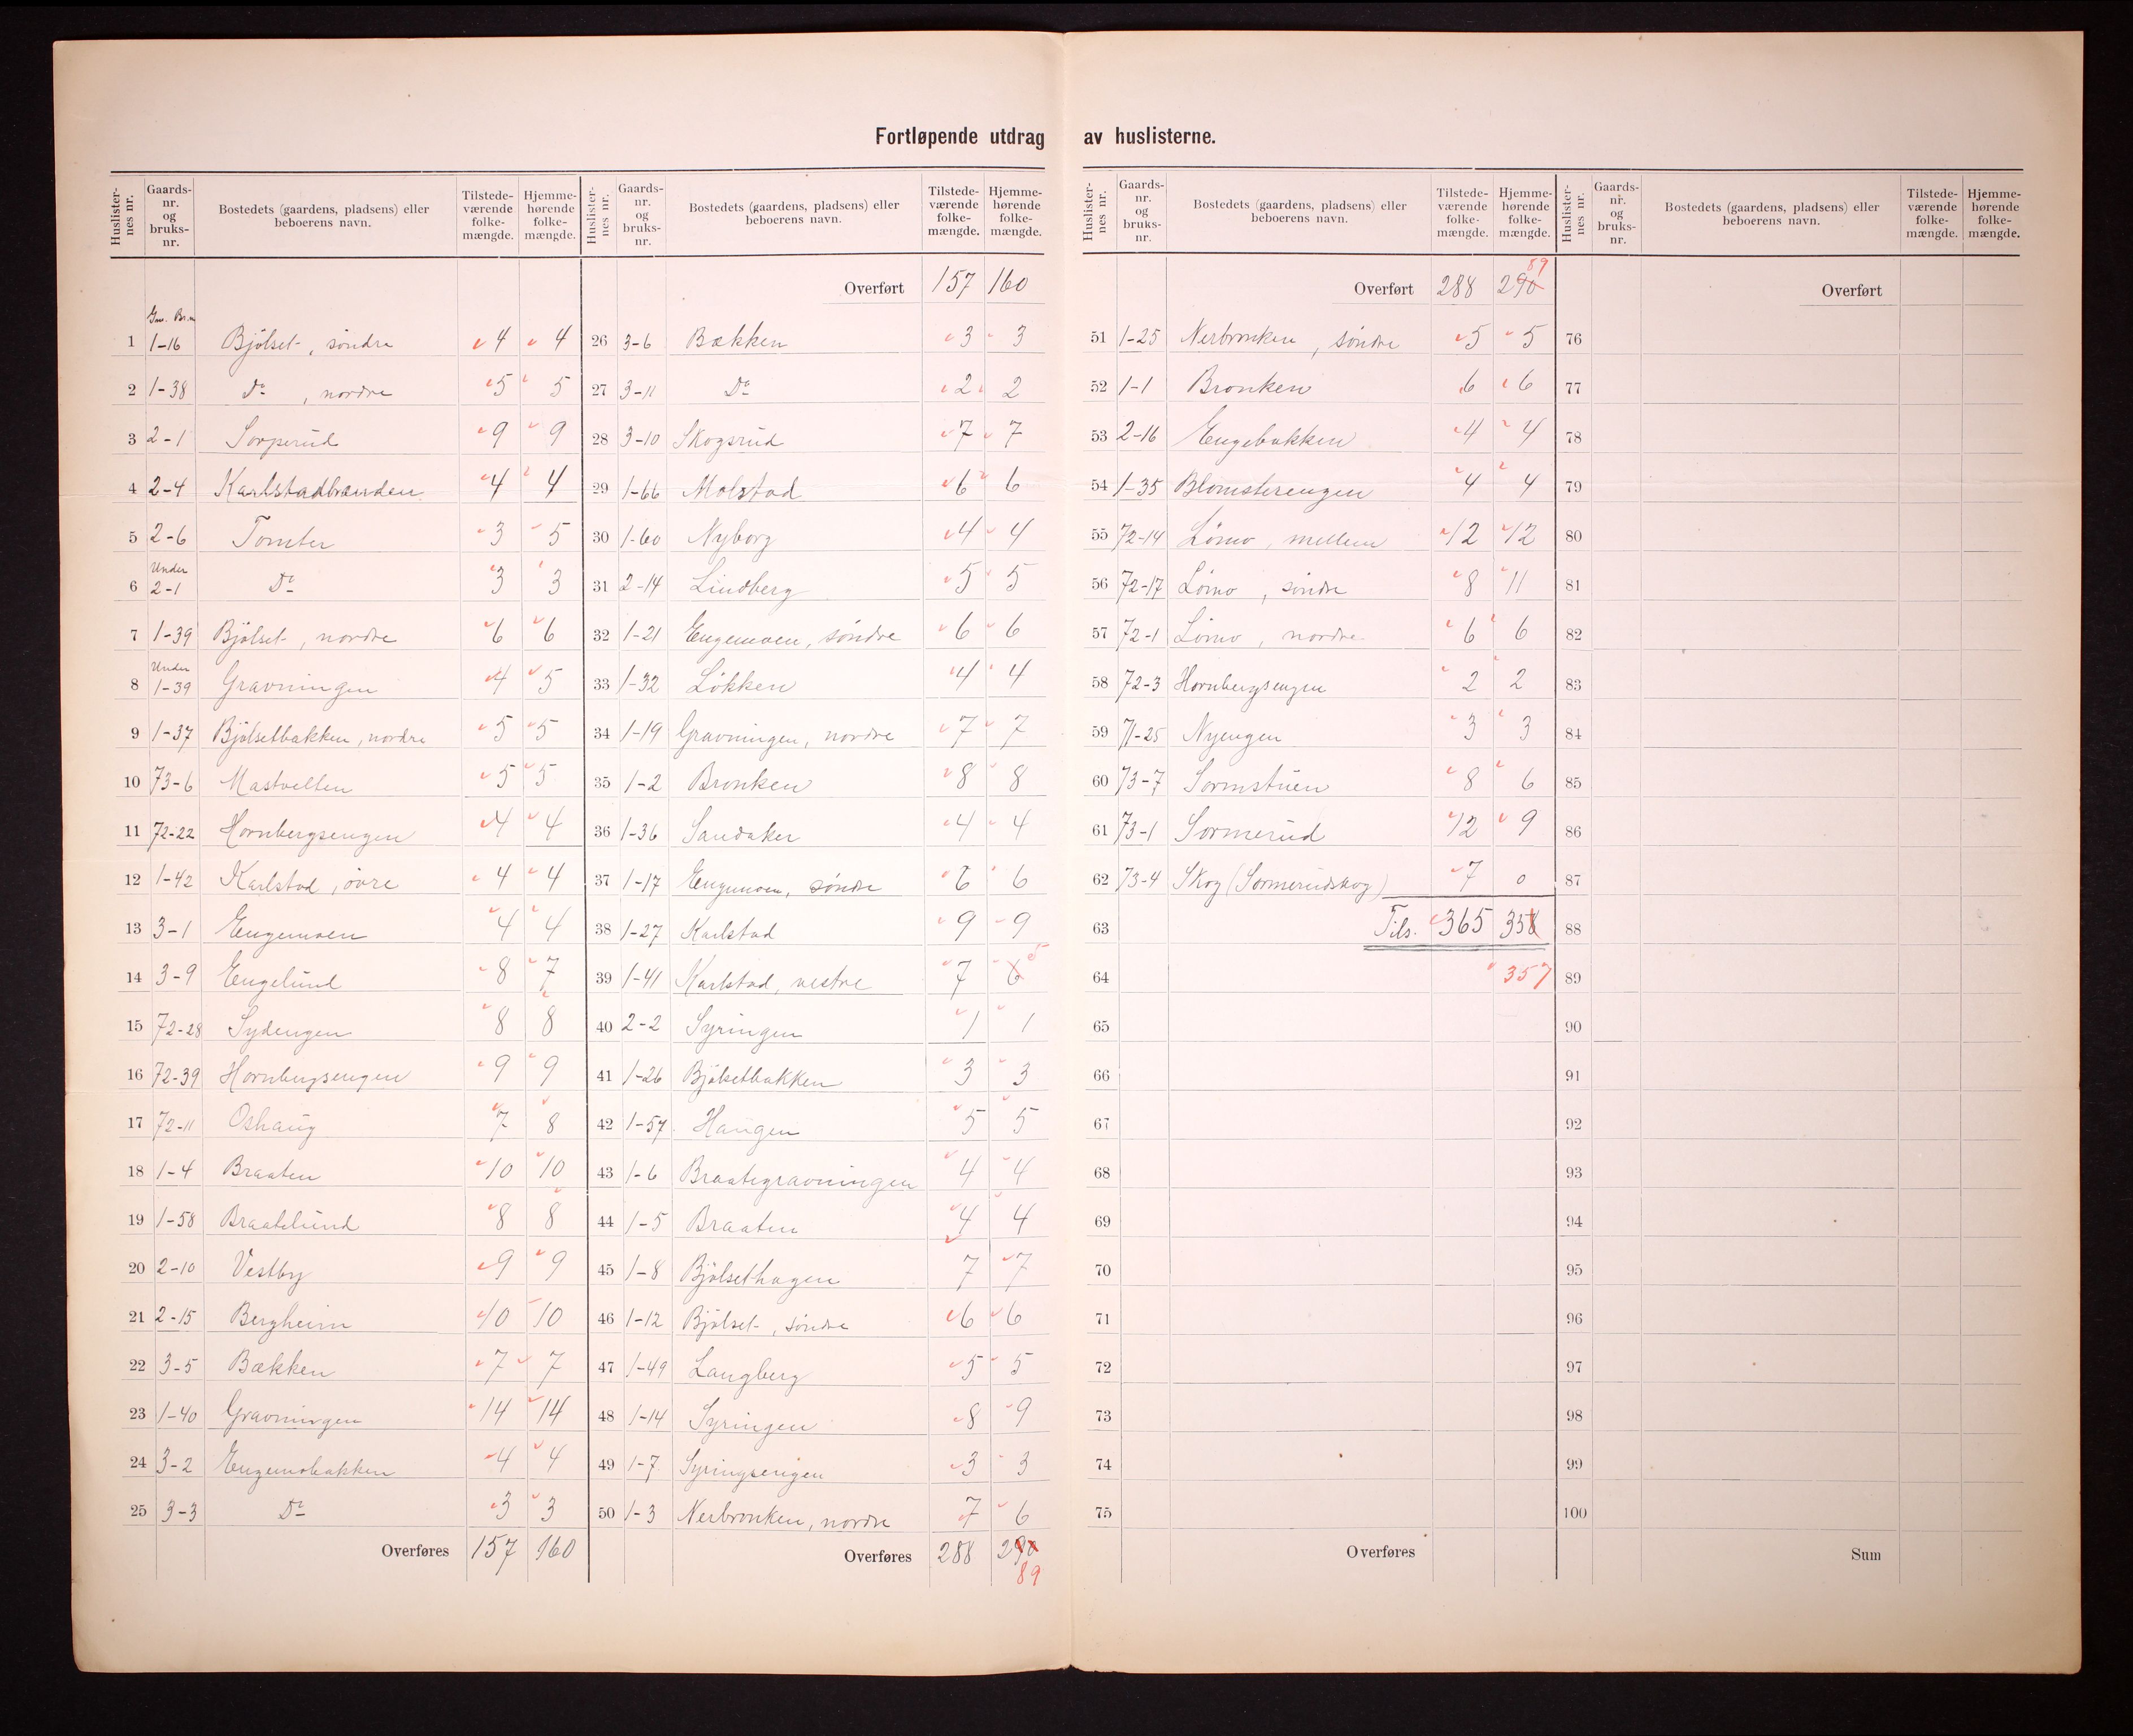 Fortløpende utdrag av huslisterne.
Huslisternes nr. Gaards-nr. og bruks-nr. Bostedets (gaardens, pladsens) eller beboerens navn. Tilstedeværende folkemængde. Hjemmehørende folkemængde.
Gno. Br.no
1 1-16 Bjølset, søndre 4 4
2 1-38 Do , nordre 5 5
3 2-1 Sorperud 9 9
4 2-4 Karlstadbrænden 4 4
5 2-6 Tomter 3 5
6 Under 2-1 Do 3 3
7 1-39 Bjølset, nordre 6 6
8 Under 1-39 Gravningen 4 5
9 1-37 Bjølsetbakken, nordre 5 5
10 73-6 Mastvellen 5 5
11 72-22 Hornbergsengen 4 4
12 1-42 Karlstad, øvre 4 4
13 3-1 Engemoen 4 4
14 3-9 Engelund 8 7
15 72-28 Sydengen 8 8
16 72-39 Hornbergsengen 9 9
17 72-11 Oshaug 7 8
18 1-4 Braaten 10 10
19 1-58 Braatelund 8 8
20 2-10 Vestby 9 9
21 2-15 Bergheim 10 10
22 3-5 Bækken 7 7
23 1-40 Gravningen 14 14
24 3-2 Engemobakken 4 4
25 3-3 Do 3 3
Overføres 157 160
Huslisternes nr. Gaards-nr. og bruks-nr. Bostedets (gaardens, pladsens) eller beboerens navn. Tilstedeværende folkemængde. Hjemmehørende folkemængde.
Overført 157 160
26 3-6 Bækken 3 3
27 3-11 Do 2 2
28 3-10 Skogsrud 7 7
29 1-66 Molstad 6 6
30 1-60 Nyborg 4 4
31 2-14 Lindberg 5 5
32 1-21 Engemoen, søndre 6 6
33 1-32 Løkken 4 4
34 1-19 Gravningen, nordre 7 7
35 1-2 Bronken 8 8
36 1-36 Sandaker 4 4
37 1-17 Engemoen, søndre 6 6
38 1-27 Karlstad 9 9
39 1-41 Karlstad, vestre 7 6 5
40 2-2 Syringen 1 1
41 1-26 Bjølsetbakken 3 3
42 1-57 Haugen 5 5
43 1-6 Braategravningen 4 4
44 1-5 Braaten 4 4
45 1-8 Bjølsethagen 7 7
46 1-12 Bjølset, søndre 6 6
47 1-49 Langberg 5 5
48 1-14 Syringen 8 9
49 1-7 Syringsengen 3 3
50 1-3 Nerbronken, nordre 7 6
Overføres 288 290
89
Huslisternes nr. Gaards-nr. og bruks-nr. Bostedets (gaardens, pladsens) eller beboerens navn. Tilstedeværende folkemængde. Hjemmehørende folkemængde.
89
Overført 288 290
51 1-25 Nerbronken, søndre 5 5
52 1-1 Bronken 6 6
53 2-16 Engebakken 4 4
54 1-35 Blomsterengen 4 4
55 72-14 Lømo, mellem 12 12
56 72-17 Lømo, søndre 8 11
57 72-1 Lømo, nordre 6 6
58 72-3 Hornbergsengen 2 2
59 71-25 Nyengen 3 3
60 73-7 Sormstuen 8 6
61 73-1 Sormerud 12 9
62 73-4 Skog (Sormerudskog) 7 0
63 Tils. 365 358
64 357
65
66
67
68
69
70
71
72
73
74
75
Overføres
Huslisternes nr. Gaards-nr. og bruks-nr. Bostedets (gaardens, pladsens) eller beboerens navn. Tilstedeværende folkemængde. Hjemmehørende folkemængde.
Overført
76
77
78
79
80
81
82
83
84
85
86
87
88
89
90
91
92
93
94
95
96
97
98
99
100
Sum